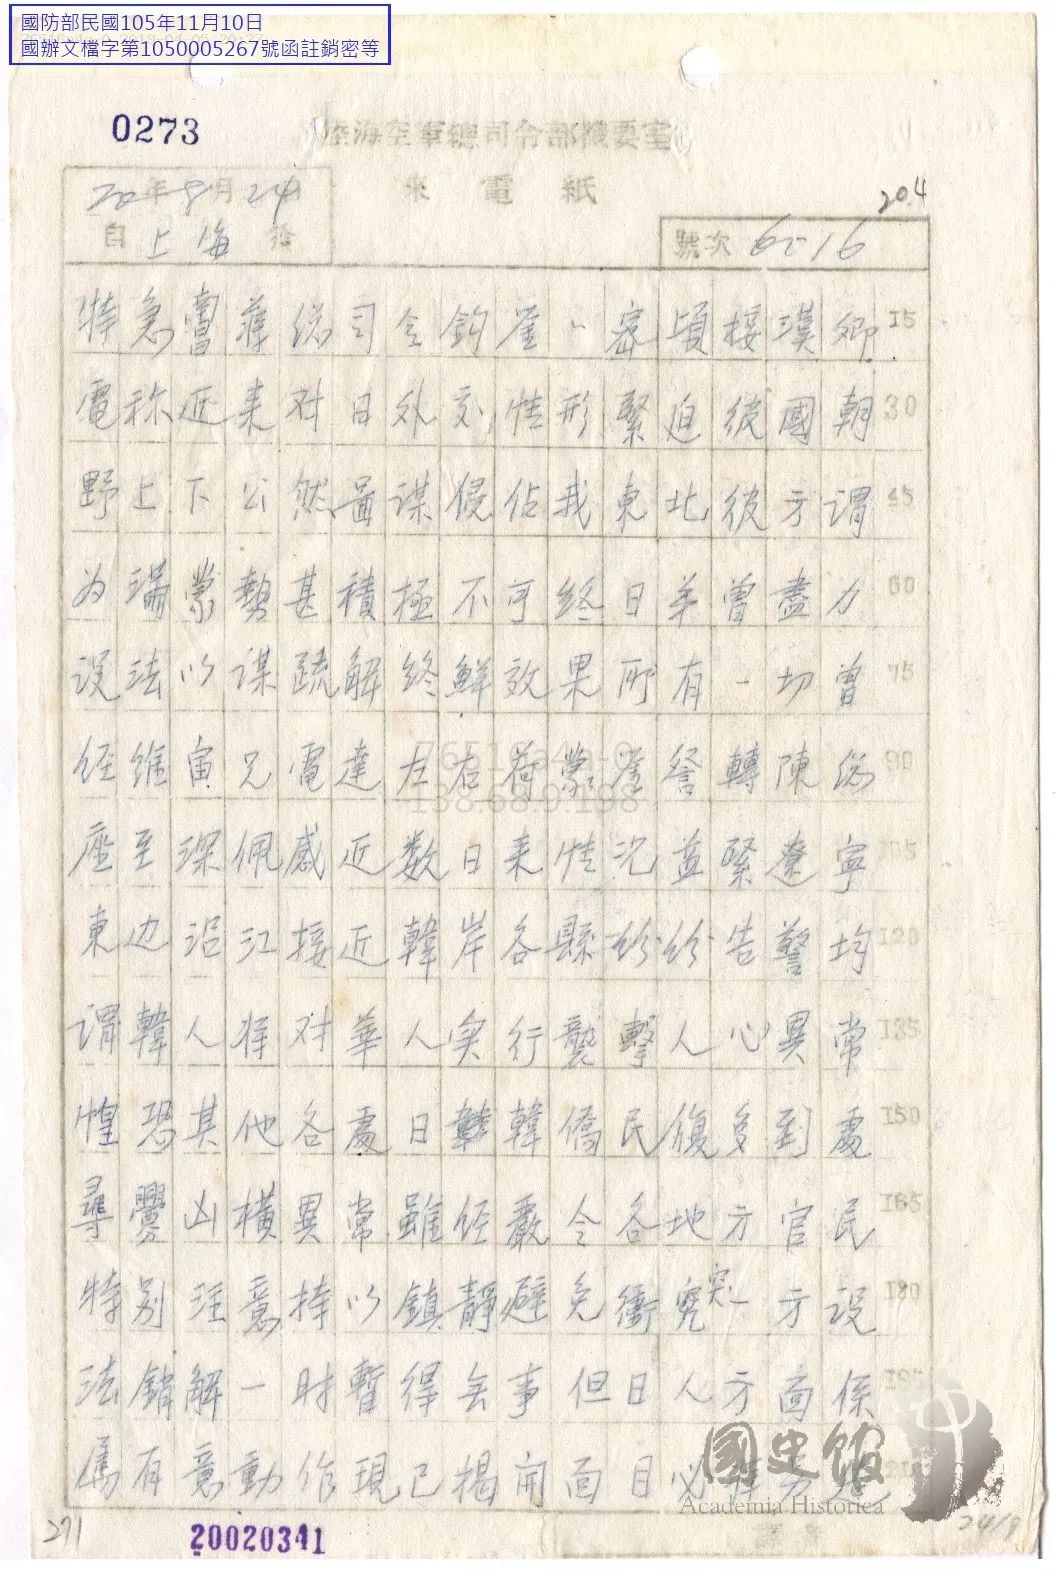 國防部民國105年11月10日
國辦文檔字第1050005267號函註銷密等
0273
陸海空軍總司令部機要室
來電紙
20年8月24日
自上海發
20.4
號次 6516
特急曹蔣總司令鈞鉴、密頃接漢卿 15
電称近来对日外交情形緊迫彼國朝 30
野上下公然啚謀侵佔我東北彼方謂 45
为滿蒙勢甚積極不可終日弟曾盡力 60
设法以謀疏解终鮮效果所有一切曾 75
经維宙兄電達左右荷蒙鉴詧轉陳总 90
座至深佩感近数日来情况益緊遼宁 105
東边沿江接近韓岸各縣纷纷告警均 120
谓韓人将对華人实行襲擊人心異常 135
惶恐其他各處日韓僑民復多到處 150
尋釁凶橫異常雖经嚴令各地方官民 165
特别注意持以鎮静避免衝突一方设 180
法銷解一时暫得無事但日人方面係 195
属有意動作現已揭開面目必
國史館
Academia Historica
271
20020341
24/9
76510a4a-0
138.68.9.198